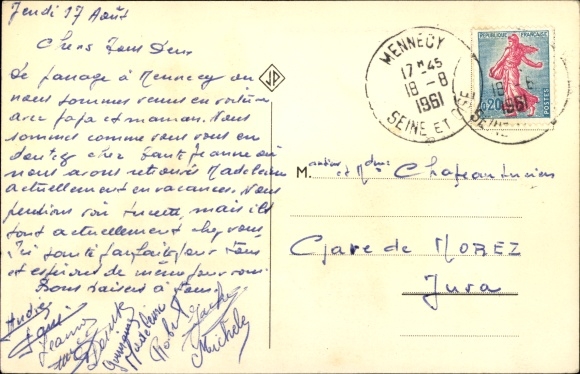 Jeudi 17 Août
Chers Tous Deux
De passage à Mennecy où
nous sommes venus en voiture
avec papa et maman. Nous
sommes comme vous vous en
doutez chez tante Jeanne où
nous avons retrouvé Madeleine
actuellement en vacances. Nous
pensions voir, mais ils
sont actuellement chez vous.
Ici santé parfaite pour tous
et espérons de même pour vous.
Bons baisers à Tous.
André
Jeanne
Madeleine
Robert
Michèle
JP
MENNECY
17H45
18-8
1961
SEINE ET OISE
REPUBLIQUE FRANÇAISE
0,20
POSTES
1961
SEINE
M. et Mme Chapeau Lucien
Gare de MOREZ
Jura